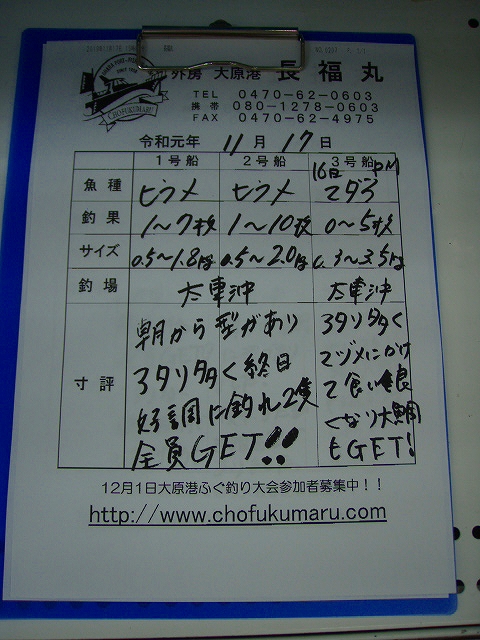 外房 大原港 長福丸
TEL 0470-62-0603
携帯 080-1278-0603
FAX 0470-62-4975
CHOFUKUMARU
令和元年 11月 17日
1号船 2号船 3号船
16日 PM
魚種 ヒラメ ヒラメ マダコ
釣果 1～7枚 1～10枚 0～5枚
サイズ 0.5～1.8kg 0.5～2.0kg 0.3～3.5kg
釣場 大東沖 大東沖
寸評
朝から型があり
アタリタタく終日
好調に釣れ2隻
全員GET!!
アタリタタく
マヅメにかけ
て食い良
くなり大鯛
もGET!
12月1日大原港ふぐ釣り大会参加者募集中！！
http://www.chofukumaru.com